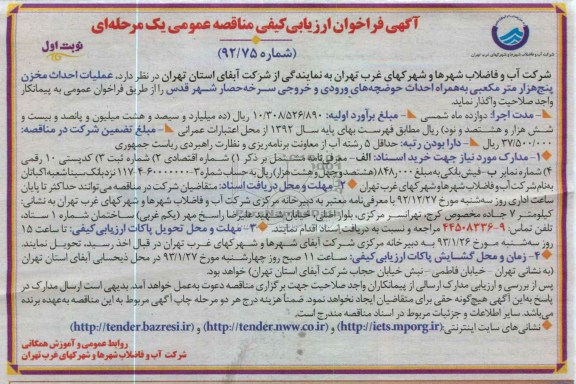 آگهی فراخوان ارزیابی کیفی مناقصه عمومی یک مرحله‌ای
(شماره ۹۲/۷۵)
نوبت اول
شرکت آب و فاضلاب شهرها و شهرکهای غرب تهران
شرکت آب و فاضلاب شهرها و شهرکهای غرب تهران به نمایندگی از شرکت آبفای استان تهران در نظر دارد، عملیات احداث مخزن
پنج‌هزار متر مکعبی به‌همراه احداث حوضچه‌های ورودی و خروجی سرخه‌حصار شهر قدس را از طریق فراخوان عمومی به پیمانکار
واجد صلاحیت واگذار نماید.
مدت اجرا: دوازده ماه شمسی مبلغ برآورد اولیه: ۱۰/۳۰۸/۵۲۶/۸۹۰ ریال (ده میلیارد و سیصد و هشت میلیون و پانصد و بیست و
شش هزار و هشتصد و نود) ریال مطابق فهرست بهای پایه سال ۱۳۹۲ از محل اعتبارات عمرانی مبلغ تضمین شرکت در مناقصه:
۳۷/۵۰۰/۰۰۰ ریال دارا بودن رتبه: حداقل ۵ رشته آب از معاونت برنامه‌ریزی و نظارت راهبردی ریاست جمهوری
۱- مدارک مورد نیاز جهت خرید اسناد: الف - معرفی‌نامه مشتمل بر ذکر ۱) شماره اقتصادی ۲) شماره ثبت ۳) کدپستی ۱۰ رقمی
۴) شماره نمابر ب- فیش بانکی به مبلغ ۸۴۸/۰۰۰ (هشتصد و چهل و هشت هزار) ریال به حساب شماره نزد بانک سینا شعبه اکباتان
بنام شرکت آب و فاضلاب شهرها و شهرکهای غرب تهران ۲- مهلت و محل دریافت اسناد: متقاضیان شرکت در مناقصه می‌توانند حداکثر تا پایان
ساعت اداری روز سه‌شنبه مورخ ۹۲/۱۲/۲۷ با معرفی‌نامه معتبر به دبیرخانه مرکزی شرکت آب و فاضلاب شهرها و شهرکهای غرب تهران به نشانی
کیلومتر ۷ جاده مخصوص کرج، تهرانسر مرکزی، بلوار خیابان شهید علیرضا راسخ مهر (یکم غربی)، ساختمان شماره ۱ ستاد،
تلفن تماس: ۹-۴۴۵۰۸۳۳۶ مراجعه و نسبت به دریافت اسناد اقدام نمایند. ۳- مهلت و محل تحویل پاکات ارزیابی کیفی: تا ساعت ۱۵
روز سه‌شنبه مورخ ۹۳/۱/۲۶ به دبیرخانه مرکزی شرکت آبفای شهرها و شهرکهای غرب تهران در قبال اخذ رسید، تحویل نمایند.
۴- زمان و محل گشایش پاکات ارزیابی کیفی: ساعت ۱۱ صبح روز چهارشنبه مورخ ۹۳/۱/۲۷ در محل ذیحسابی آبفای استان تهران
(به نشانی تهران - خیابان فاطمی - نبش خیابان حجاب شرکت آبفای استان تهران) خواهد بود.
پس از بررسی و ارزیابی مدارک ارسالی از پیمانکاران واجد صلاحیت جهت برگزاری مناقصه دعوت به‌عمل خواهد آمد. بدیهی است ارسال مدارک در
پاسخ به این آگهی هیچ‌گونه حقی برای متقاضیان ایجاد نخواهد نمود. ضمناً هزینه درج هر دو مرحله چاپ آگهی مربوط به این مناقصه به‌عهده برنده
می‌باشد. سایر اطلاعات و جزئیات مربوط در اسناد مناقصه مندرج است.
نشانی‌های سایت اینترنتی: (http://iets.mporg.ir) و (http://tender.nww.co.ir) و (http://tender.bazresi.ir)
روابط عمومی و آموزش همگانی
شرکت آب و فاضلاب شهرها و شهرکهای غرب تهران